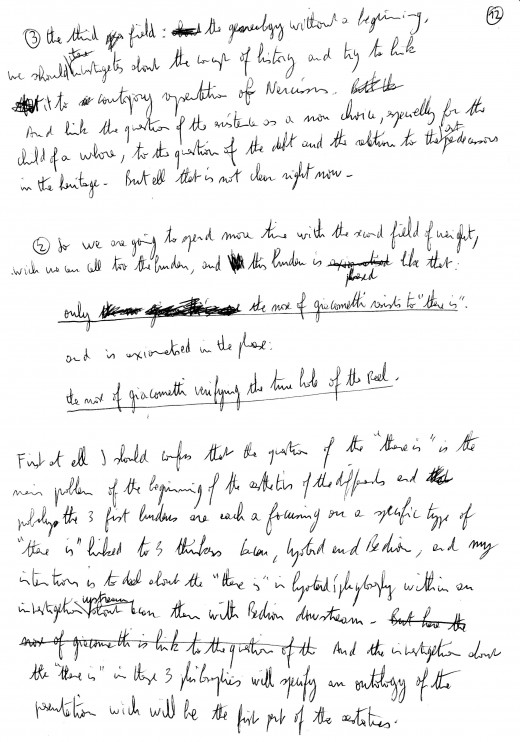 92
③ the third field : the genealogy without a beginning,
we should also investigate about the concept of history and try to link
it to contemporary repetition of Narcissus.
And link the question of the existence as a non choice, especially for the
child of a whore, to the question of the debt and the relation to the predecessors
in the heritage - But all that is not clear right now -
② So we are going to spend more time with the second field of weight,
wich we can call too the burden, and this burden is phrased like that :
only the nose of giacometti resists to "there is".
and is axiomatised in the phrase :
the nose of giacometti verifying the true hole of the Real.
First of all I should confess that the question of the "there is" is the
main problem of the beginning of the aesthetics of the differends and
the 3 first burdens are each a focusing on a specific type of
"there is" linked to 3 thinkers Lacan, Lyotard and Badiou, and my
intention is to deal about the "there is" in lyotard's philosophy within an
investigation upstream about Lacan then with Badiou downstream - But here the
nose of giacometti is link to the question of the And the investigation about
the "there is" in those 3 philosophies will specify an ontology of the
presentation wich will be the first part of the aesthetics.